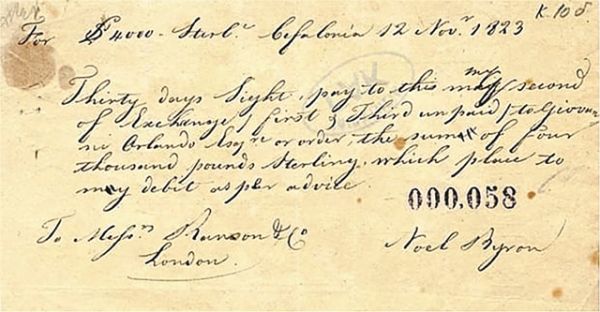 K. 10 δ.
For £ 4000 - Sterl.ᵍ Cefalonia 12 Nov.ʳ 1823
Thirty days Sight, pay to this my second
of Exchange / first & Third unpaid / to Giovan
ni Orlando Esqʳᵉ or order, the sum of four
thousand pounds Sterling, which place to
my debit as per advice.
000,058
To Messʳˢ Ransom & Co Noel Byron
London